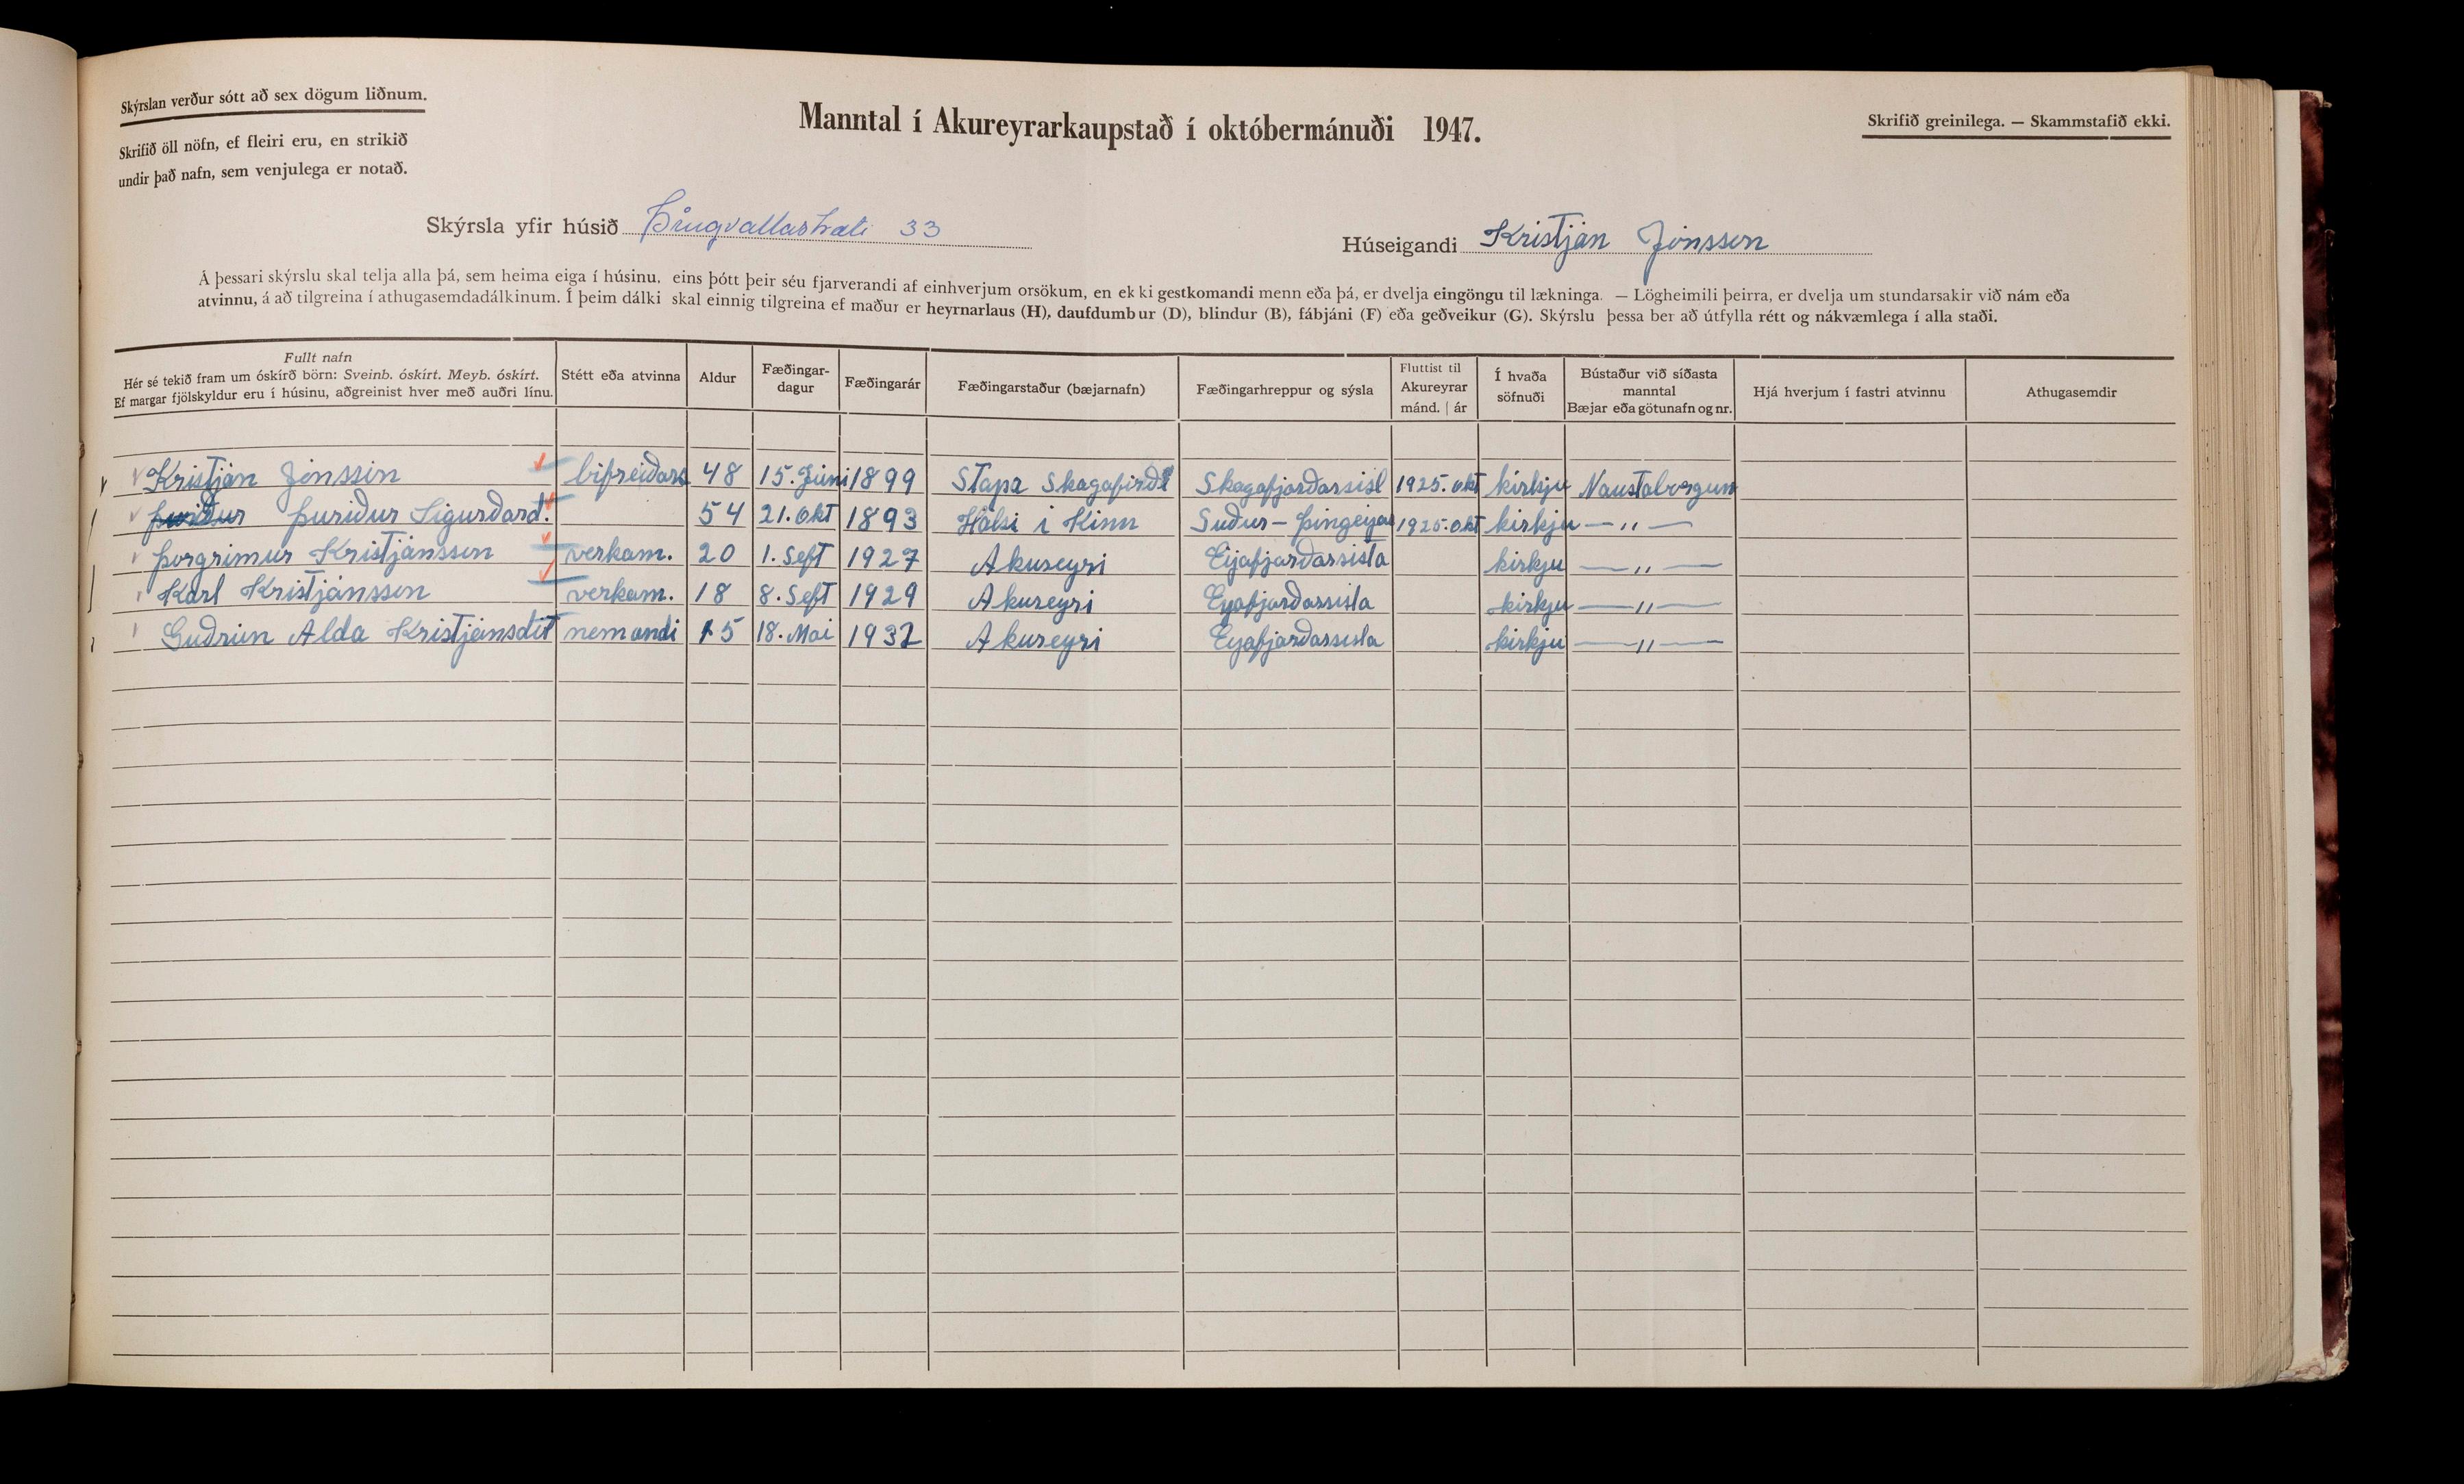 Skýrslan verður sótt að sex dögum liðnum.
Skrifið öll nöfn, ef fleiri eru, en strikið
undir það nafn, sem venjulega er notað.
Manntal í Akureyrarkaupstað í októbermánuði 1947.
Skrifið greinilega. — Skammstafið ekki.
Skýrsla yfir húsið Þingvallastræti 33
Húseigandi Kristján Jónsson
Á þessari skýrslu skal telja alla þá, sem heima eiga í húsinu, eins þótt þeir séu fjarverandi af einhverjum orsökum, en ekki gestkomandi menn eða þá, er dvelja eingöngu til lækninga. — Lögheimili þeirra, er dvelja um stundarsakir við nám eða
atvinnu, á að tilgreina í athugasemdadálkinum. Í þeim dálki skal einnig tilgreina ef maður er heyrnarlaus (H), daufdumbur (D), blindur (B), fábjáni (F) eða geðveikur (G). Skýrslu þessa ber að útfylla rétt og nákvæmlega í alla staði.
Fullt nafn
Hér sé tekið fram um óskírð börn: Sveinb. óskírt. Meyb. óskírt.
Ef margar fjölskyldur eru í húsinu, aðgreinist hver með auðri línu.
Stétt eða atvinna
Aldur
Fæðingar-
dagur
Fæðingarár
Fæðingarstaður (bæjarnafn)
Fæðingarhreppur og sýsla
Fluttist til
Akureyrar
mánd. | ár
Í hvaða
söfnuði
Bústaður við síðasta
manntal
Bæjar eða götunafn og nr.
Hjá hverjum í fastri atvinnu
Athugasemdir
Kristján Jónsson bifreiðars 48 15. Júní 1899 Stapa Skagafirði Skagafjarðarsísl 1925. okt kirkju Naustaborgum
Þuriður Þuríður Sigurðard. 54 21. okt 1893 Hálsi i Kinn Suður-Þingeyjar 1925. okt kirkju — " —
Þorgrímur Kristjánsson verkam. 20 1. Sept 1927 Akureyri Eyjafjarðarsísla kirkju — " —
Karl Kristjánsson verkam. 18 8. Sept 1929 Akureyri Eyafjarðarsísla kirkju — " —
Guðrún Alda Kristjánsdót nemandi 15 18. Mai 1932 Akureyri Eyafjarðarsísla kirkju — " —